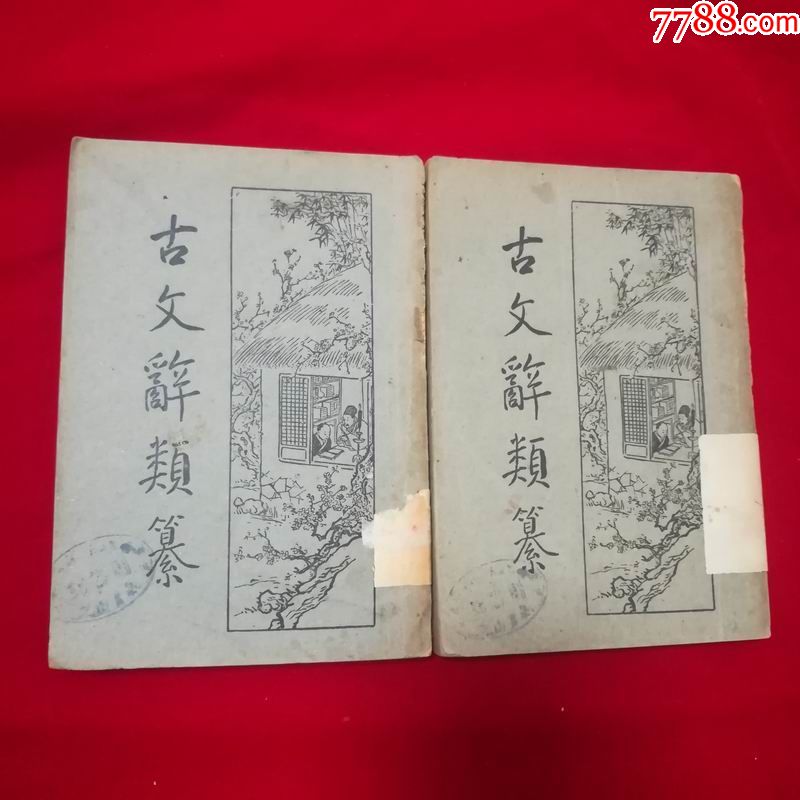 7788.com
古文辭類纂
古文辭類纂